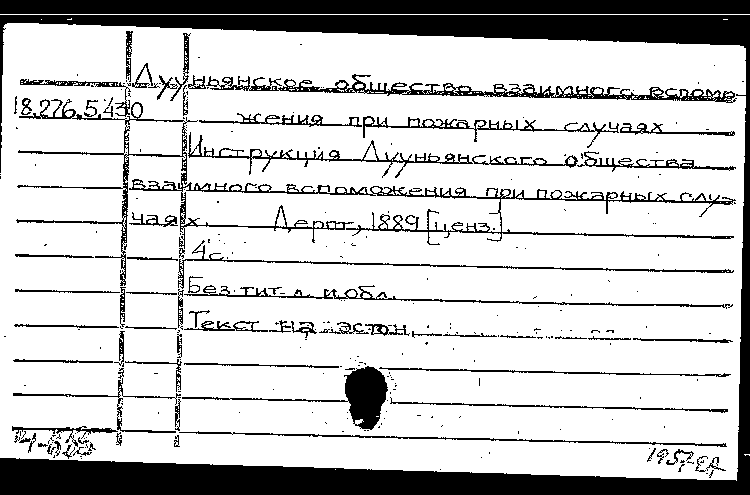 Лууньянское общество взаимного вспомо-
18.276.5.430
жения при пожарных случаях
Инструкция Лууньянского общества
взаимного вспоможения при пожарных слу-
чаях. Дерпт, 1889 [ценз.].
4 с.
Без тит. л. и обл.
Текст на эстон.
1957